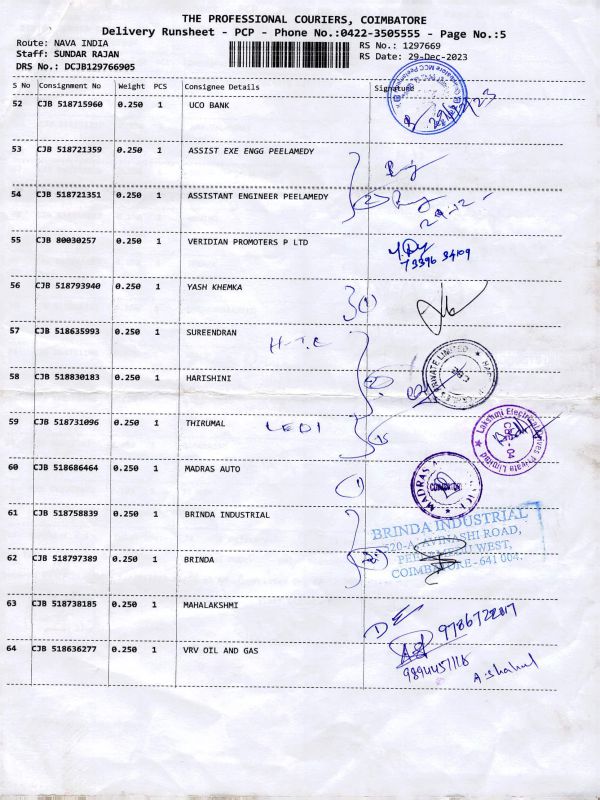 THE PROFESSIONAL COURIERS, COIMBATORE
Delivery Runsheet - PCP - Phone No.:0422-3505555 - Page No.:5
Route: NAVA INDIA
RS No.: 1297669
Staff: SUNDAR RAJAN
RS Date: 29-Dec-2023
DRS No.: DCJB129766905
S No Consignment No Weight PCS Consignee Details Signature
52 CJB 518715960 0.250 1 UCO BANK
53 CJB 518721359 0.250 1 ASSIST EXE ENGG PEELAMEDY
54 CJB 518721351 0.250 1 ASSISTANT ENGINEER PEELAMEDY
55 CJB 80030257 0.250 1 VERIDIAN PROMOTERS P LTD
73396 34109
56 CJB 518793940 0.250 1 YASH KHEMKA
1
57 CJB 518635993 0.250 1 SUREENDRAN
PRIVATE LIMITED
58 CJB 518830183 0.250 1 HARISHINI
59 CJB 518731096 0.250 1 THIRUMAL
Lakshmi Electrical Drives Private Limited
60 CJB 518686464 0.250 1 MADRAS AUTO
MADRAS
61 CJB 518758839 0.250 1 BRINDA INDUSTRIAL
BRINDA INDUSTRIAL
AVINASHI ROAD,
WEST,
COIMBATORE - 641 004.
62 CJB 518797389 0.250 1 BRINDA
63 CJB 518738185 0.250 1 MAHALAKSHMI
64 CJB 518636277 0.250 1 VRV OIL AND GAS